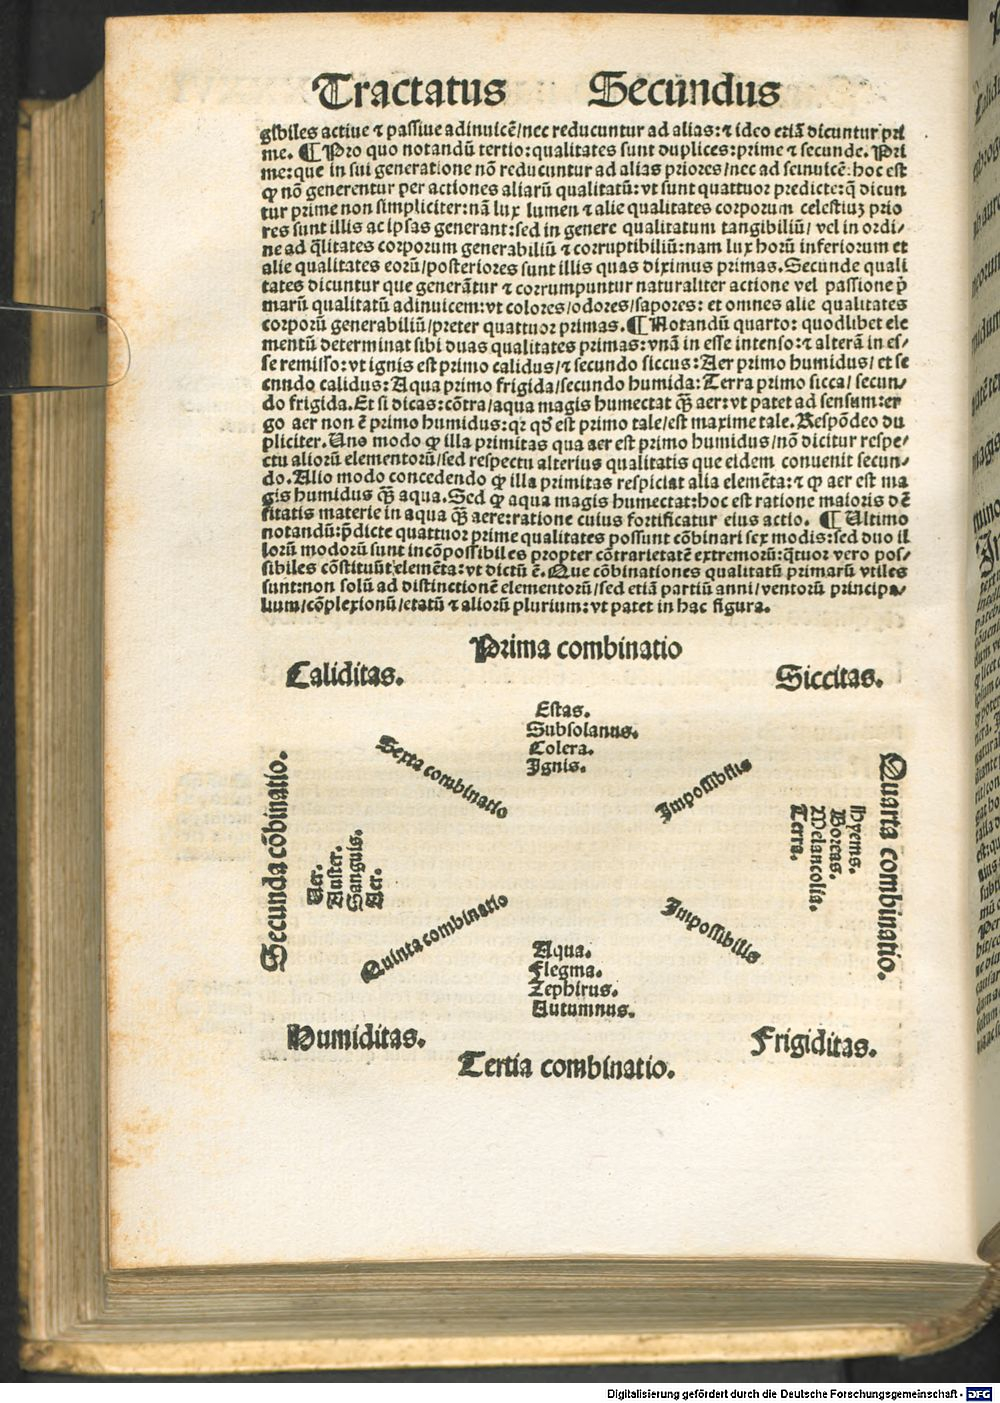 Tractatus Secundus
gibiles actiue ⁊ passiue adinuicē/nec reducuntur ad alias: ⁊ ideo etiā dicuntur pri
me. ¶ Pro quo notandū tertio: qualitates sunt duplices: prime ⁊ secunde. Pri
me: que in sui generatione nō reducuntur ad alias priores/nec ad seinuicē: hoc est
ꝙ nō generentur per actiones aliarū qualitatū: vt sunt quattuor predicte: q̄ dicun
tur prime non simpliciter: nā lux lumen ⁊ alie qualitates corporum celestiuꝫ prio
res sunt illis ac ipsas generant: sed in genere qualitatum tangibiliū/ vel in ordi/
ne ad q̄litates corporum generabiliū ⁊ corruptibiliū: nam lux horū inferiorum et
alie qualitates eorū/posteriores sunt illis quas diximus primas. Secunde quali
tates dicuntur que generātur ⁊ corrumpuntur naturaliter actione vel passione p̄
marū qualitatū adinuicem: vt colores/odores/sapores: et omnes alie qualitates
corporū generabiliū/preter quattuor primas. ¶ Notandū quarto: quodlibet ele
mentū determinat sibi duas qualitates primas: vnā in esse intenso: ⁊ alterā in es/
se remisso: vt ignis est primo calidus/⁊ secundo siccus: Aer primo humidus/ et se
cnndo calidus: Aqua primo frigida/secundo humida: Terra primo sicca/ secun/
do frigida. Et si dicas: cōtra/aqua magis humectat q̄ꝫ aer: vt patet ad sensum: er
go aer non ē primo humidus: qꝛ qd̓ est primo tale/est maxime tale. Respōdeo du
pliciter. Uno modo ꝙ illa primitas qua aer est primo humidus/nō dicitur respe/
ctu aliorū elementorū/sed respectu alterius qualitatis que eidem conuenit secun/
do. Alio modo concedendo ꝙ illa primitas respiciat alia elemēta: ⁊ ꝙ aer est ma
gis humidus q̄ꝫ aqua. Sed ꝙ aqua magis humectat: hoc est ratione maioris dē
sitatis materie in aqua q̄ꝫ aere: ratione cuius fortificatur eius actio. ¶ Ultimo
notandū: p̄dicte quattuor prime qualitates possunt cōbinari sex modis: sed duo il
lorū modorū sunt incōpossibiles propter cōtrarietatē extremorū: q̄tuor vero pos/
sibiles cōstituūt elemēta: vt dictū ē. Que cōbinationes qualitatū primarū vtiles
sunt: non solū ad distinctionē elementorū/sed etiā partiū anni/ventorū principa/
lium/cōplexionū/etatū ⁊ aliorū plurium: vt patet in hac figura.
Prima combinatio
Caliditas.
Siccitas.
Estas.
Subsolanus.
Colera.
Ignis.
Sexta combinatio
Impossibilis
Secunda cōbinatio.
Uer.
Auster.
Sanguis.
Aer.
Quarta combinatio.
Hyems.
Boreas.
Melancolia.
Terra.
Quinta combinatio
Impossibilis
Aqua.
Flegma.
Zephirus.
Autumnus.
Humiditas.
Frigiditas.
Tertia combinatio.
Digitalisierung gefördert durch die Deutsche Forschungsgemeinschaft - DFG